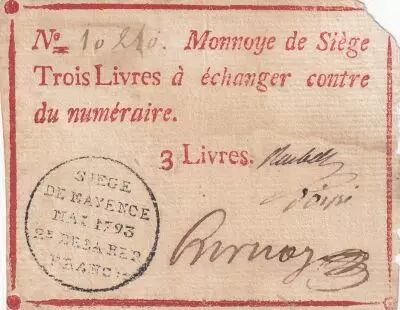 No. 10210. Monnoye de Siège
Trois Livres à échanger contre
du numéraire.
3 Livres.
SIEGE
DE MAYENCE
MAI 1793
2E DE LA REP
FRANC